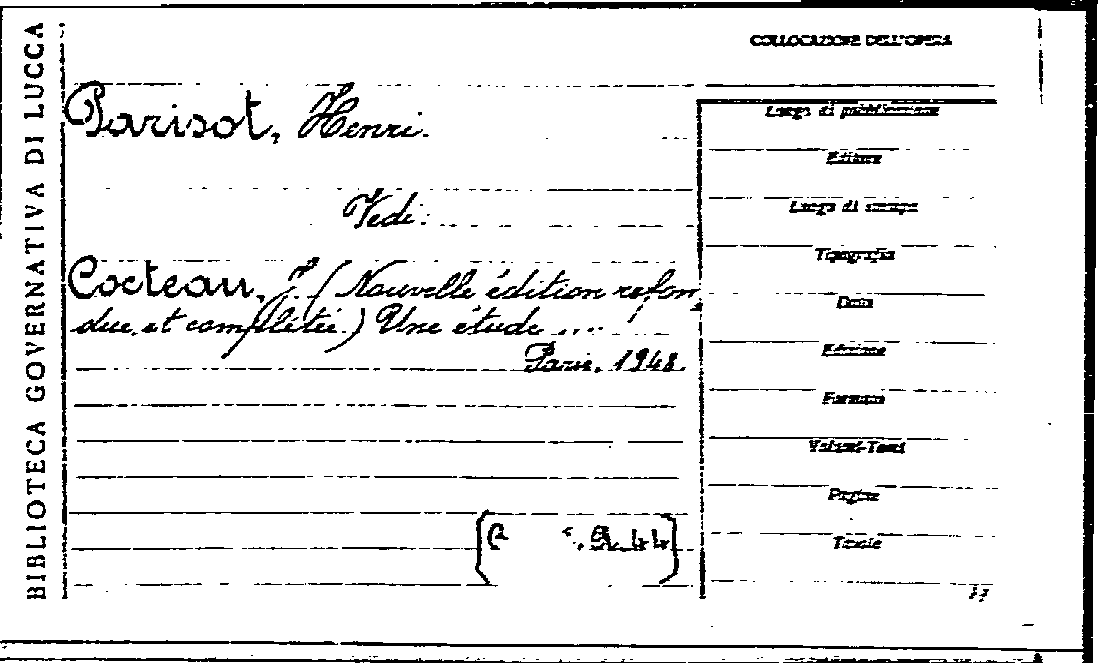 BIBLIOTECA GOVERNATIVA DI LUCCA
Parisot, Henri.
Vedi:
Cocteau, J. (Nouvelle édition refon
due et complétée.) Une étude ....
Paris, 1948.
COLLOCAZIONE DELL'OPERA
Luogo di pubblicazione
Editore
Luogo di stampa
Tipografia
Data
Edizione
Formato
Volumi-Tomi
Pagine
Tavole